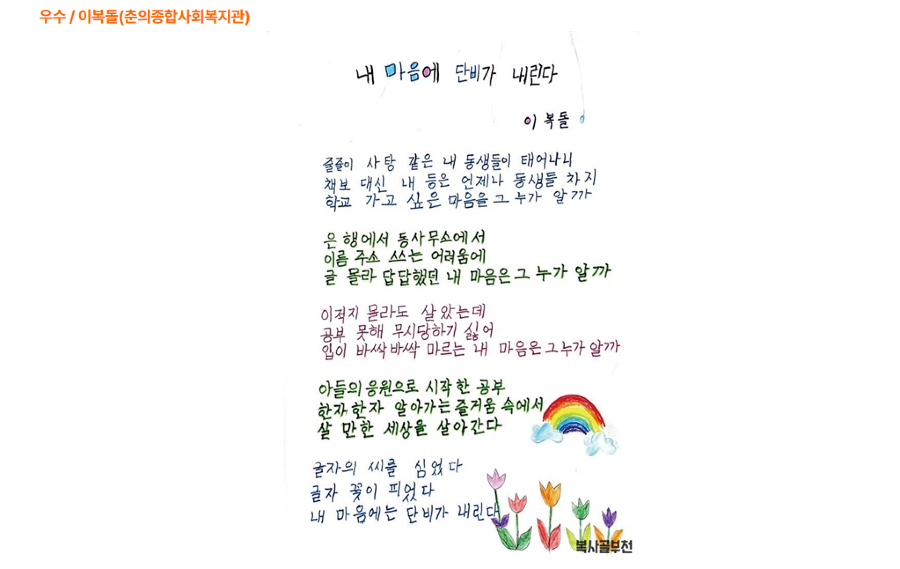 우수 / 이복돌(춘의종합사회복지관)
내 마음에 단비가 내린다
이복돌
줄줄이 사탕 같은 내 동생들이 태어나니
책보 대신 내 등은 언제나 동생들 차지
학교 가고 싶은 마음을 그 누가 알까
은행에서 동사무소에서
이름 주소 쓰는 어려움에
글 몰라 답답했던 내 마음은 그 누가 알까
이적지 몰라도 살았는데
공부 못해 무시당하기 싫어
입이 바싹바싹 마르는 내 마음은 그 누가 알까
아들의 응원으로 시작한 공부
한자 한자 알아가는 즐거움 속에서
살 만한 세상을 살아간다
글자의 씨를 심었다
글자 꽃이 피었다
내 마음에는 단비가 내린다
복사골부천